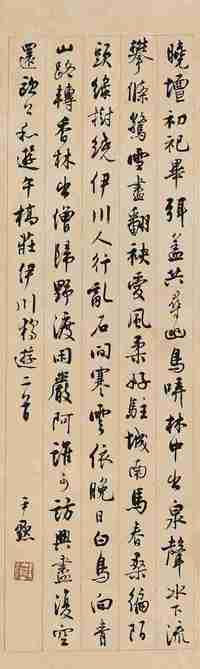 曉壇初祀畢弭蓋共尋幽鳥哢林中出泉聲冰下流
攀條驚雪盡翻袂愛風柔好駐城南馬春桑徧陌
頭綠樹繞伊川人行亂石間寒雲依晚日白鳥向青
山路轉香林出僧歸野渡閑巖阿誰可訪興盡復空
還歐公和遊午橋莊伊川獨遊二首
尹默